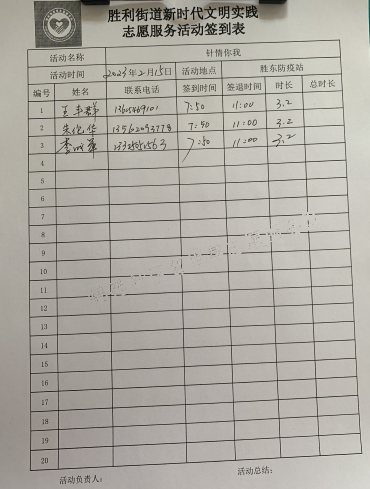 胜利街道新时代文明实践
志愿服务活动签到表
活动名称 针情你我
活动时间 2023年2月15日 活动地点 胜东防疫站
编号 姓名 联系电话 签到时间 签退时间 时长 总时长
1 7:50 11:00 3.2
2 朱伦华 7:50 11:00 3.2
3 7:50 11:00 3.2
4
5
6
7
8
9
10
11
12
13
14
15
16
17
18
19
20
活动负责人： 活动总结：